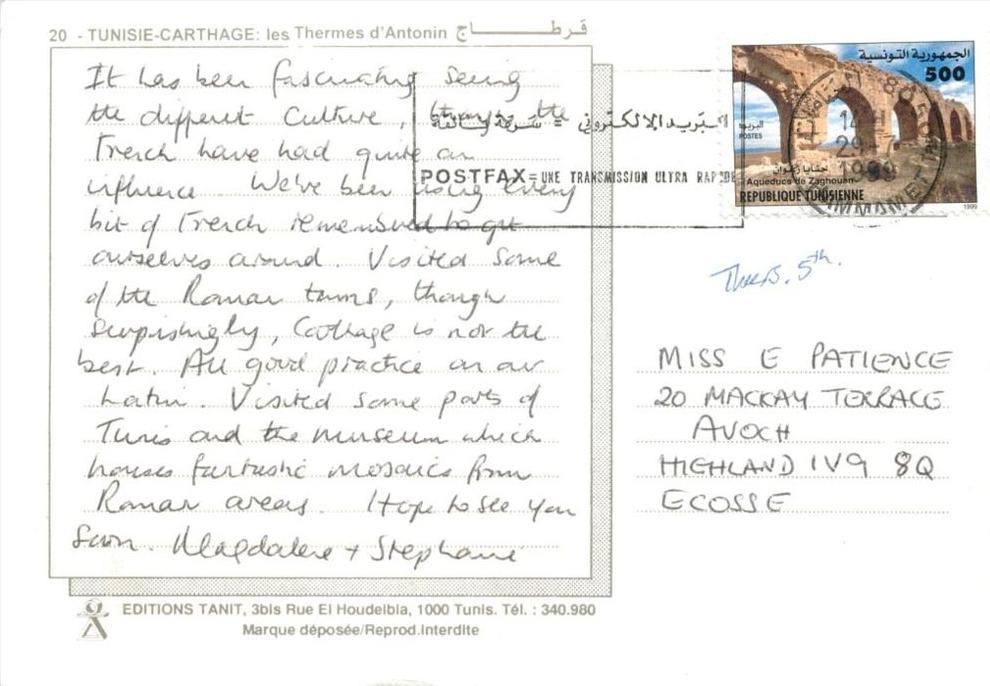 20 - TUNISIE-CARTHAGE: les Thermes d'Antonin قرطاج
It has been fascinating seeing
the different culture, the
French have had quite an
influence We've been using every
bit of French remembered to get
ourselves around. Visited some
of the Roman towns, though
surprisingly, Carthage is not the
best. All good practice on our
Latin. Visited some parts of
Tunis and the museum which
houses fantastic mosaics from
Roman areas. Hope to see you
soon. Magdalene + Stephanie
EDITIONS TANIT, 3bis Rue El Houdeibia, 1000 Tunis. Tél. : 340.980
Marque déposée/Reprod.Interdite
البريد الالكتروني = سرعة فائقة
POSTFAX = UNE TRANSMISSION ULTRA RAPIDE
الجمهورية التونسية
500
البريد
POSTES
حنايا زغوان
Aqueducs de Zaghouan
REPUBLIQUE TUNISIENNE
1999
1999
HAMMAMET
Thurs. 5th.
MISS E PATIENCE
20 MACKAY TERRACE
AVOCH
HIGHLAND IV9 8Q
ECOSSE